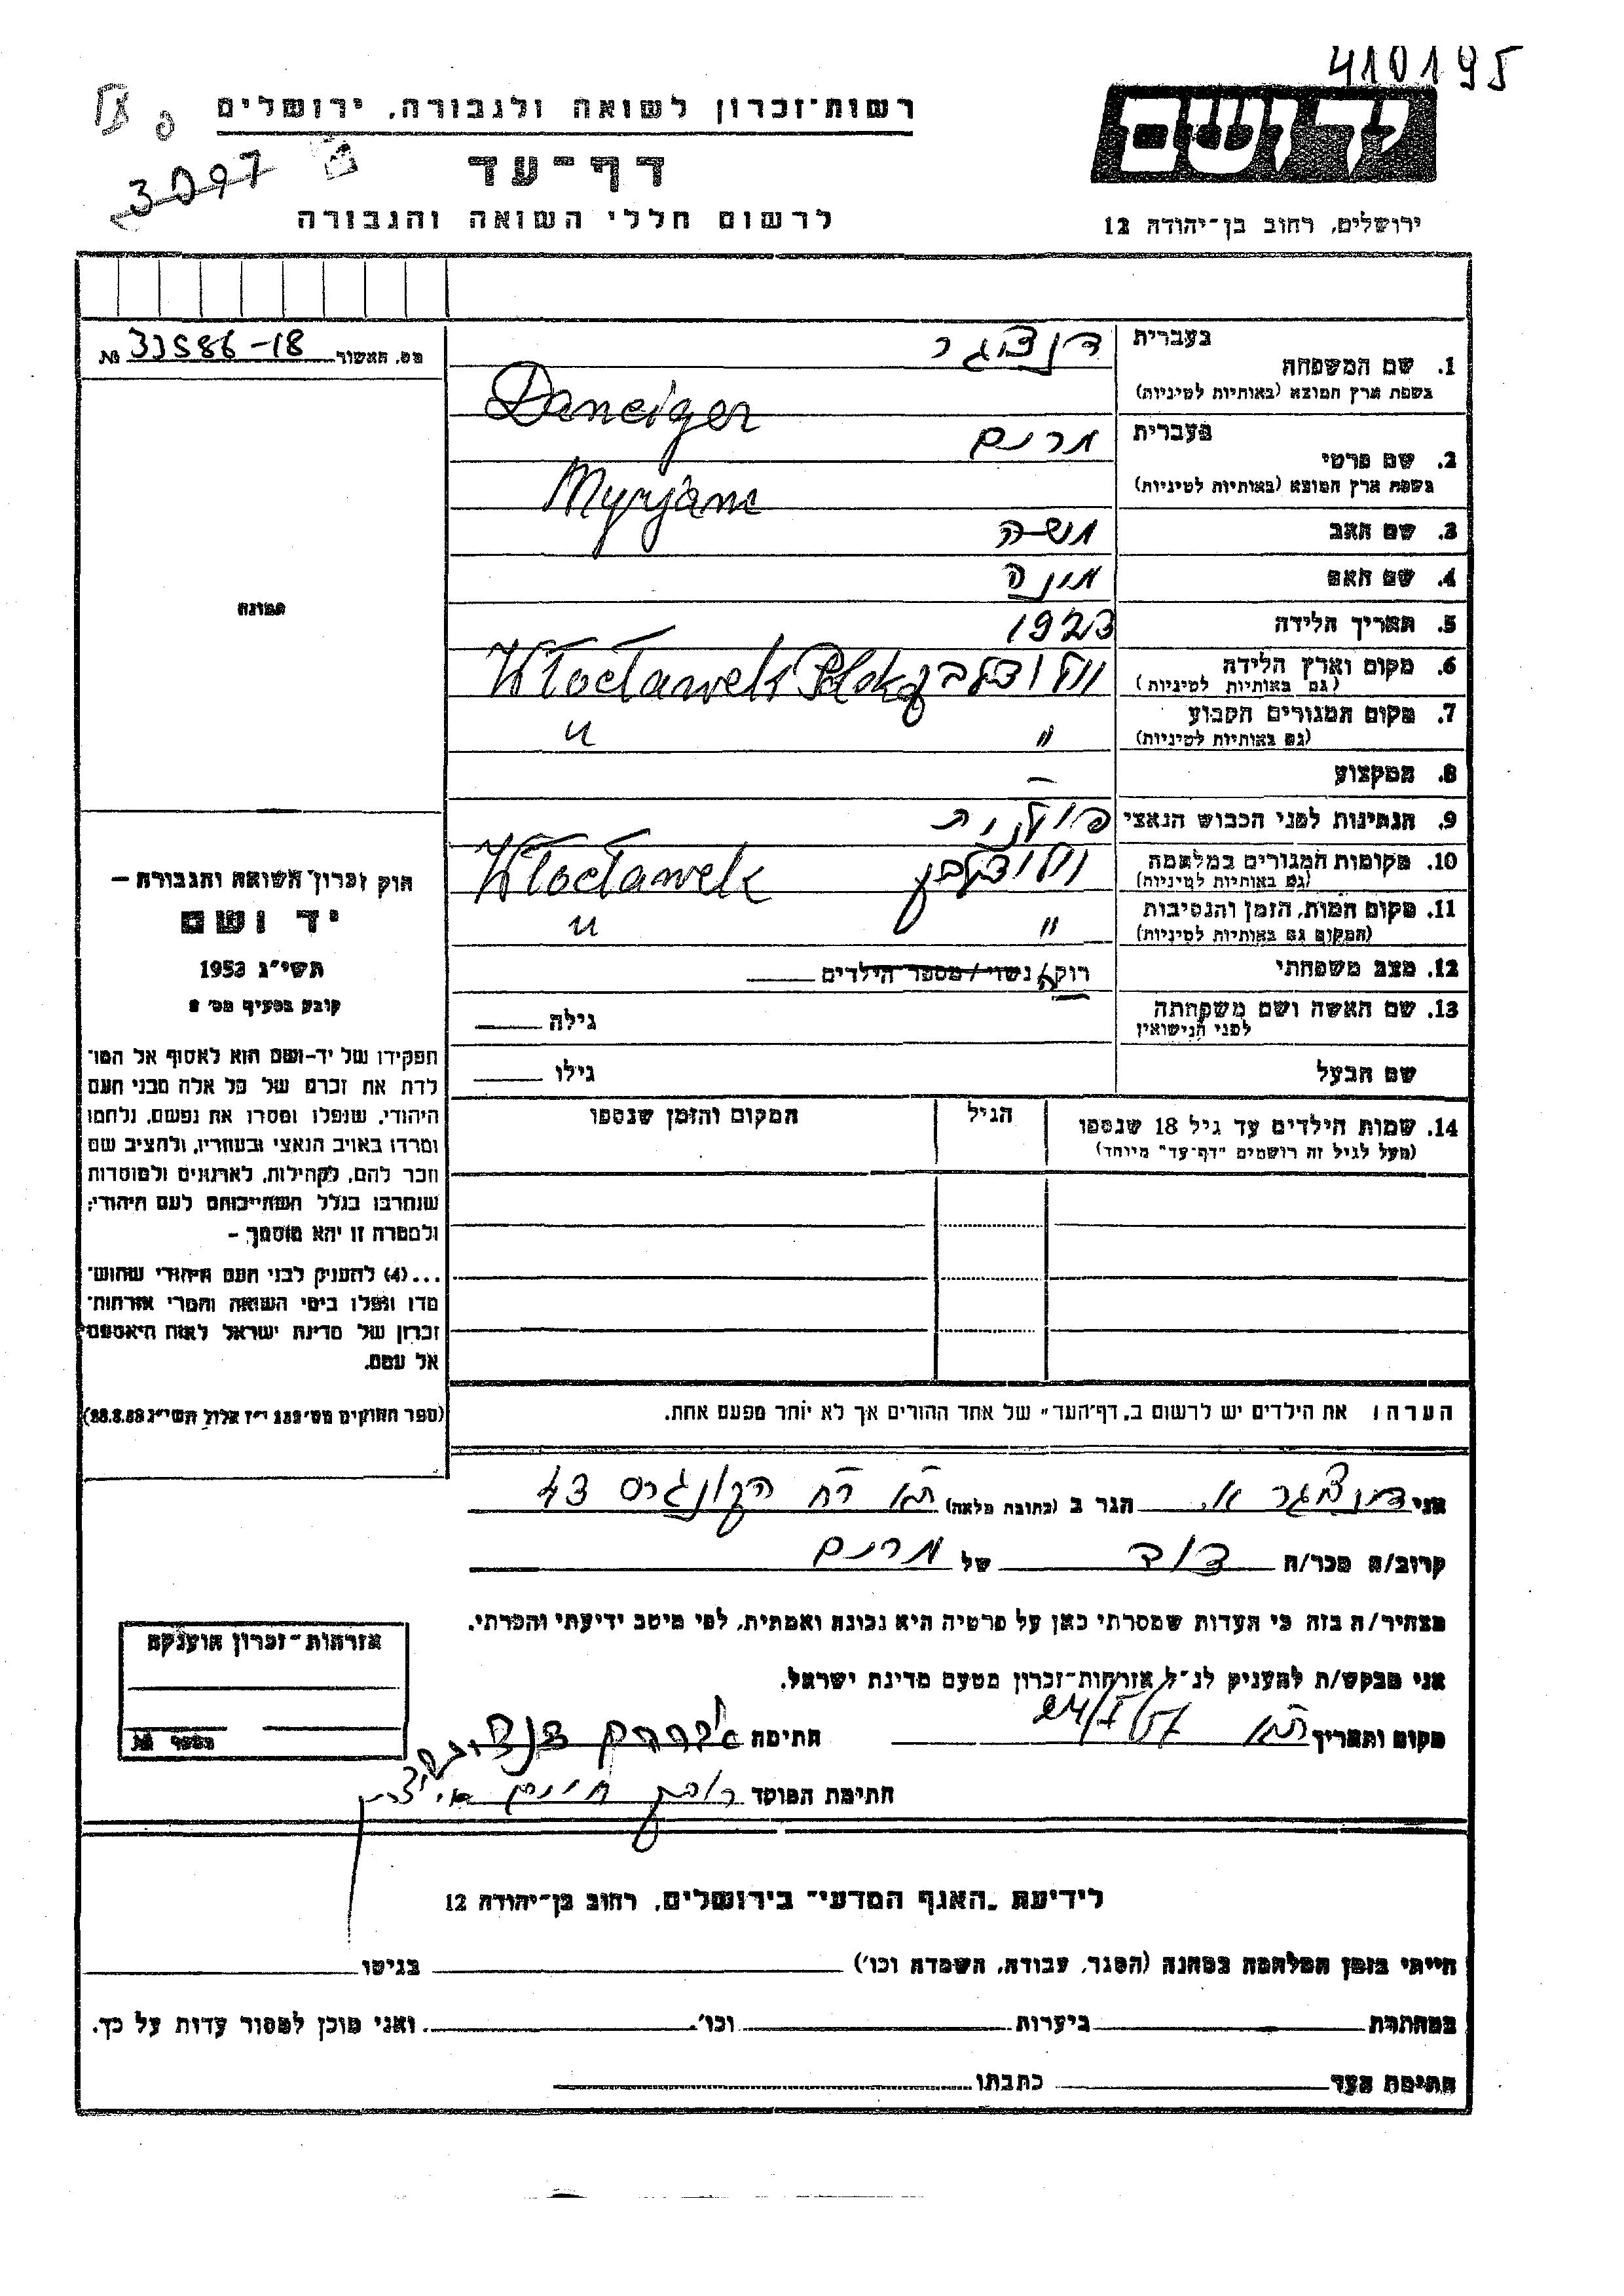 410195
יד ושם
רשות-זכרון לשואה ולגבורה, ירושלים
3097
דף-עד
לרשום חללי השואה והגבורה
ירושלים, רחוב בן-יהודה 12
מס. האשור 33586-18 №
בעברית דנציגר
1. שם המשפחה
בשפת ארץ המוצא (באותיות לטיניות) Danciger
בעברית מרים
2. שם פרטי
בשפת ארץ המוצא (באותיות לטיניות) Myrjam
3. שם האב משה
4. שם האם
5. תאריך הלידה 1923
6. מקום וארץ הלידה
(גם באותיות לטיניות) Włocławek Polska
7. מקום המגורים הקבוע " "
(גם באותיות לטיניות)
8. המקצוע –
9. הנתינות לפני הכבוש הנאצי פולנית
10. מקומות המגורים במלחמה Włocławek
(גם באותיות לטיניות)
11. מקום המות, הזמן והנסיבות " "
(המקום גם באותיות לטיניות)
12. מצב משפחתי רוקה / נשוי / מספר הילדים
13. שם האשה ושם משפחתה
לפני הנישואין
גילה
שם הבעל גילו
14. שמות הילדים עד גיל 18 שנספו הגיל המקום והזמן שנספו
(מעל לגיל זה רושמים "דף-עד" מיוחד)
הערה: את הילדים יש לרשום ב"דף-העד" של אחד ההורים אך לא יותר מפעם אחת.
תמונה
חוק זכרון השואה והגבורה —
יד ושם
תשי"ג 1953
קובע בסעיף מס' 2
תפקידו של יד-ושם הוא לאסוף אל המו־
לדת את זכרם של כל אלה מבני העם
היהודי, שנפלו ומסרו את נפשם, נלחמו
ומרדו באויב הנאצי ובעוזריו, ולהציב שם
וזכר להם, לקהילות, לארגונים ולמוסדות
שנחרבו בגלל השתייכותם לעם היהודי;
ולמטרה זו יהא מוסמך –
...(4) להעניק לבני העם היהודי שהוש־
מדו ונפלו בימי השואה והמרי אזרחות־
זכרון של מדינת ישראל לאות היאספם
אל עמם.
(ספר החוקים מס' 132 י"ז אלול תשי"ג 28.8.53)
אני דנציגר א. הגר ב (כתובת מלאה) ת"א רח הקונגרס 43
קרוב/ה מכר/ה דוד של מרים
מצהיר/ה בזה כי העדות שמסרתי כאן על פרטיה היא נכונה ואמתית, לפי מיטב ידיעתי והכרתי.
אני מבקש/ת להעניק לנ"ל אזרחות-זכרון מטעם מדינת ישראל.
מקום ותאריך ת"א חתימה אברהם דנציגר
חתימת הפוקד
אזרחות-זכרון הוענקה
מספר №
לידיעת "האגף המדעי" בירושלים, רחוב בן-יהודה 12
הייתי בזמן המלחמה במחנה (הסגר, עבודה, השמדה וכו') בגיטו
במחתרת ביערות וכו'. ואני מוכן למסור עדות על כך.
חתימת העד כתבתו